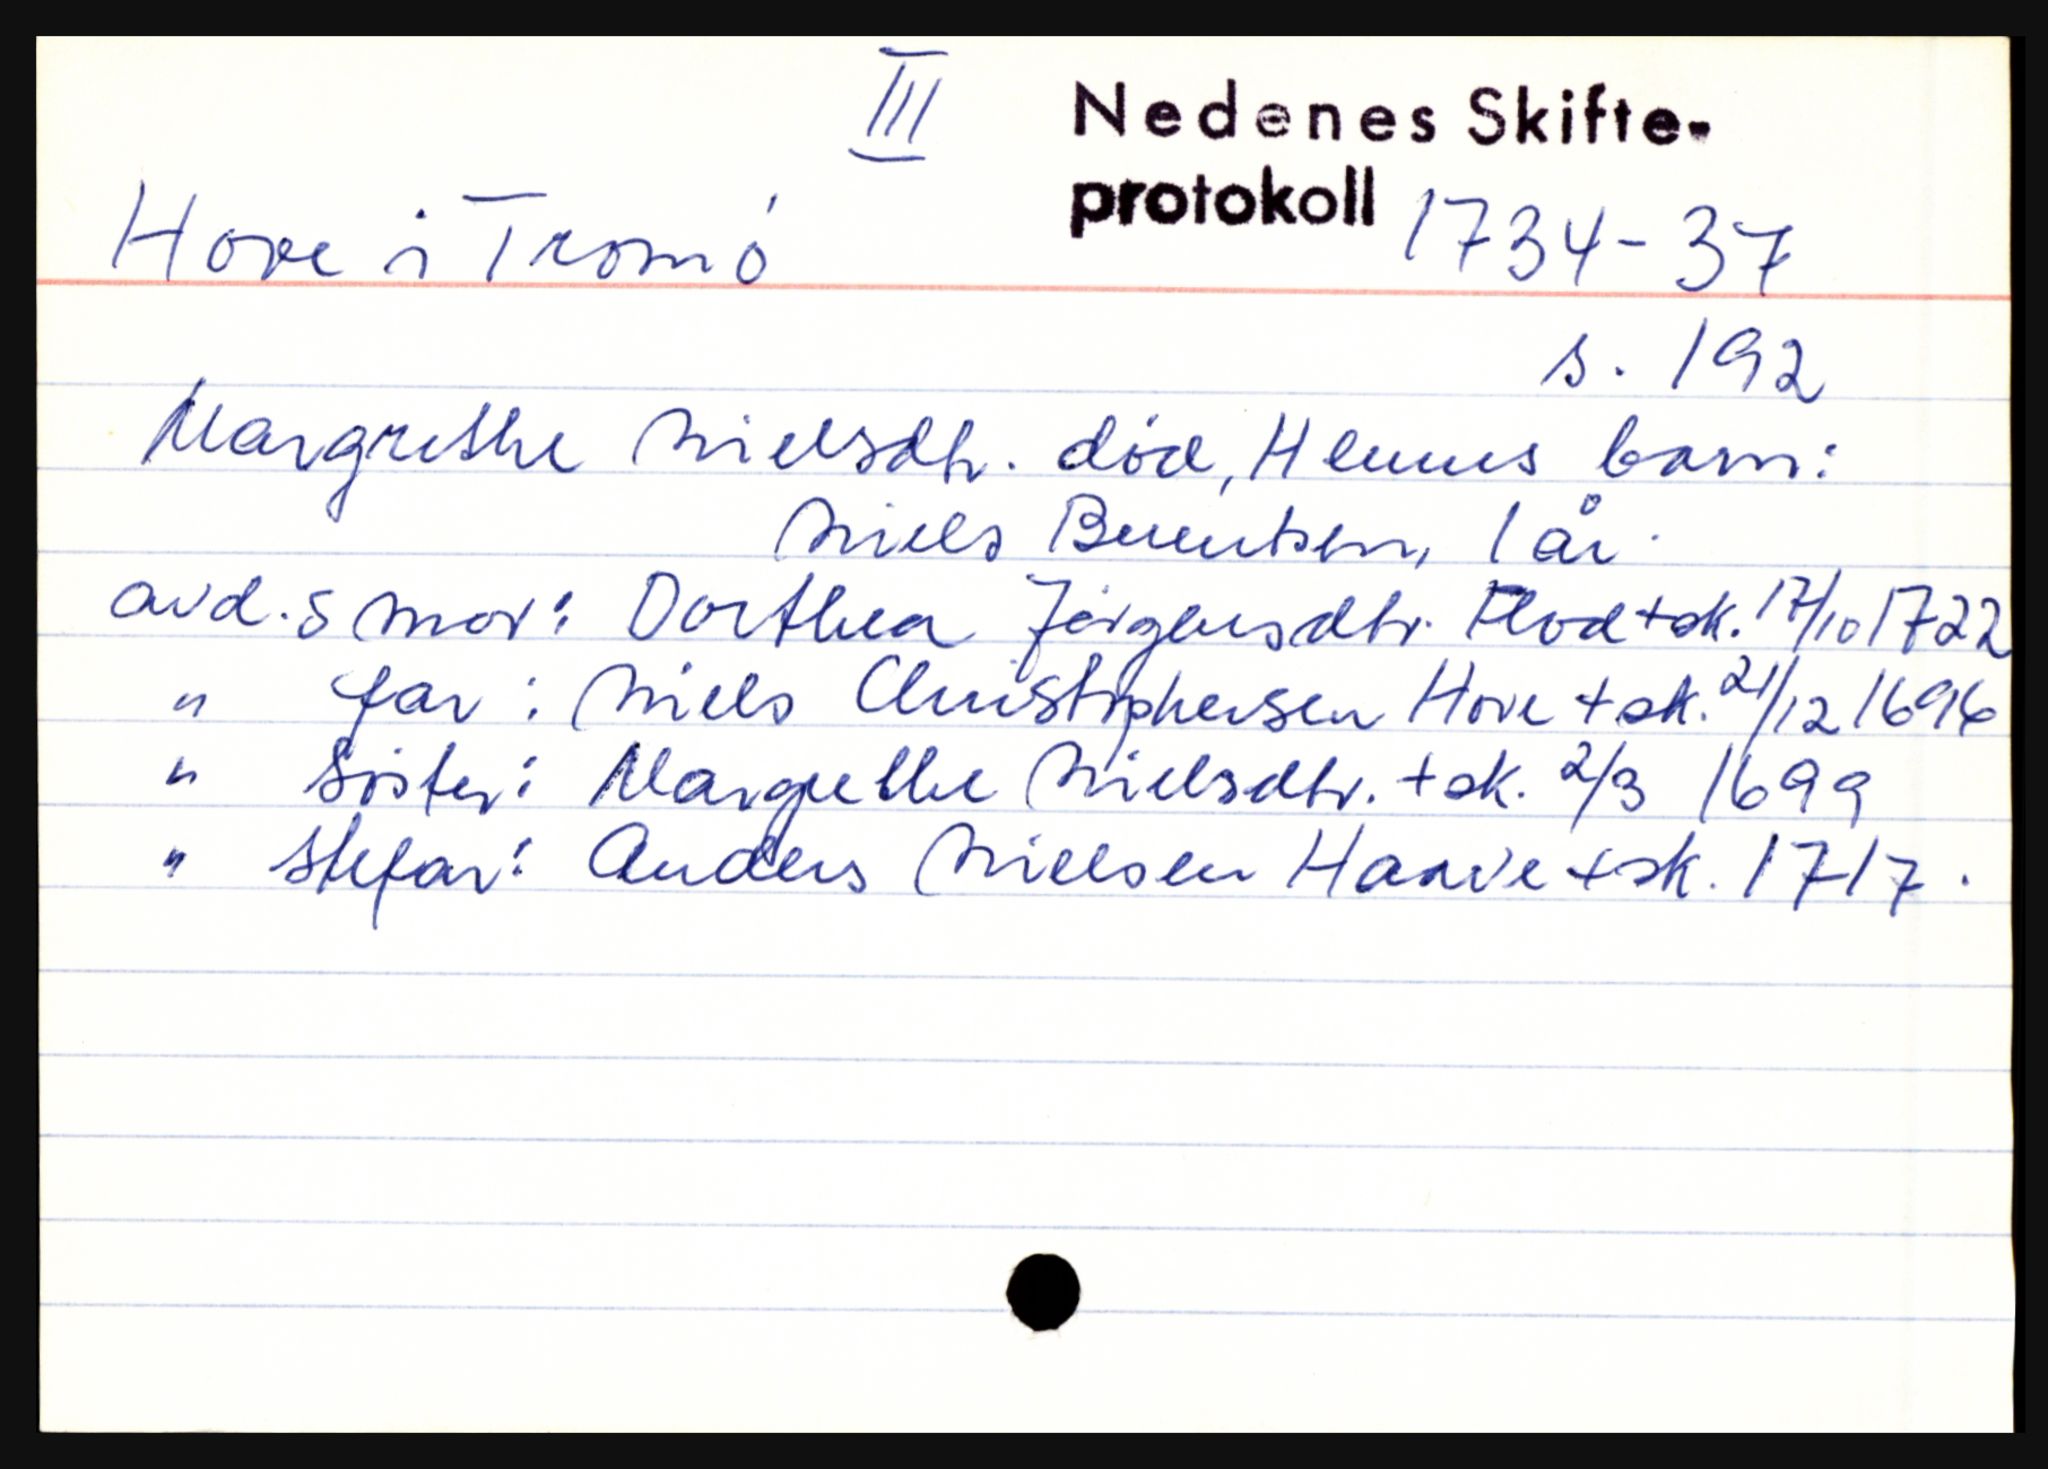 III
Nedenes Skifte-
protokoll 1734-37
Hove i Tromö
s. 192
Margrethe Nielsdtr. död, Hennes barn:
Niels Berentsen, 1 år.
avd.s mor: Dorthea Jörgensdtr. Flod + sk. 17/10 1722
" far: Niels Christophersen Hove + sk. 21/12 1696
" Söster: Margrethe Nielsdtr. + sk. 2/3 1699
" stefar: Anders Nielsen Haave + sk. 1717.